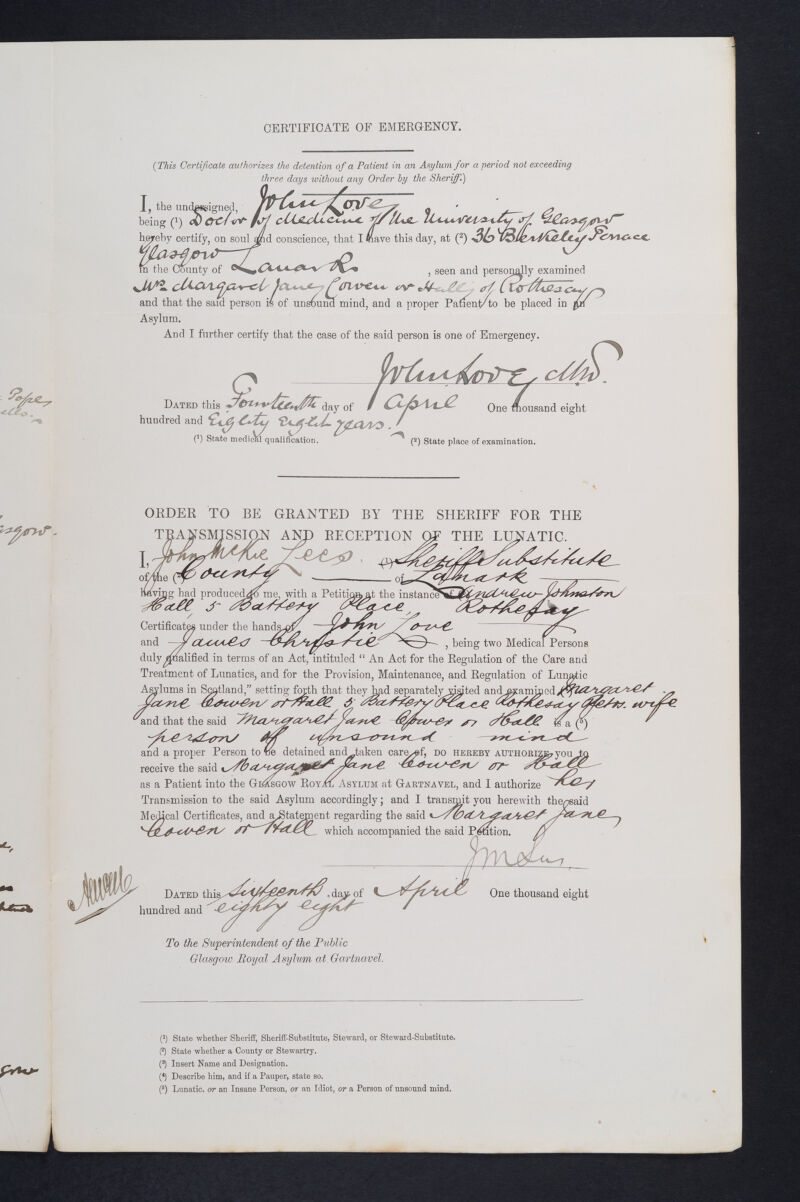 CERTIFICATE OF EMERGENCY.
(This Certificate authorizes the detention of a Patient in an Asylum for a period not exceeding
three days without any Order by the Sheriff.)
I, the undersigned, John Love
being (1) Doctor of Medicine of the University of Glasgow
hereby certify, on soul and conscience, that I have this day, at (2) 36 Berkeley Terrace
Glasgow
in the County of Lanark , seen and personally examined
Mrs Margaret Jane Cowen or Hall, of Rothesay
and that the said person is of unsound mind, and a proper Patient to be placed in an
Asylum.
And I further certify that the case of the said person is one of Emergency.
John Love, MD.
DATED this Fourteenth day of April One thousand eight
hundred and Eighty Eight years.
(1) State medical qualification. (2) State place of examination.
ORDER TO BE GRANTED BY THE SHERIFF FOR THE
TRANSMISSION AND RECEPTION OF THE LUNATIC.
I, John McKie Lees (1) Sheriff Substitute
of the (2) County of Lanark
having had produced to me, with a Petition at the instance of Andrew Johnston
Hall, 5 Battery Place, Rothesay
Certificates under the hands of John Love
and James Christie , being two Medical Persons
duly qualified in terms of an Act, intituled " An Act for the Regulation of the Care and
Treatment of Lunatics, and for the Provision, Maintenance, and Regulation of Lunatic
Asylums in Scotland," setting forth that they had separately visited and examined Margaret
Jane Cowen or Hall, 5 Battery Place Rothesay Petrs. wife
and that the said Margaret Jane Cowen or Hall is a (5)
person of unsound mind
and a proper Person to be detained and taken care of, DO HEREBY AUTHORIZE you to
receive the said Margaret Jane Cowen or Hall
as a Patient into the GLASGOW ROYAL ASYLUM at GARTNAVEL, and I authorize her
Transmission to the said Asylum accordingly; and I transmit you herewith the said
Medical Certificates, and a Statement regarding the said Margaret Jane
Cowen or Hall which accompanied the said Petition.
DATED this Sixteenth day of April One thousand eight
hundred and eighty eight
To the Superintendent of the Public
Glasgow Royal Asylum at Gartnavel.
(1) State whether Sheriff, Sheriff-Substitute, Steward, or Steward-Substitute.
(2) State whether a County or Stewartry.
(3) Insert Name and Designation.
(4) Describe him, and if a Pauper, state so.
(5) Lunatic, or an Insane Person, or an Idiot, or a Person of unsound mind.